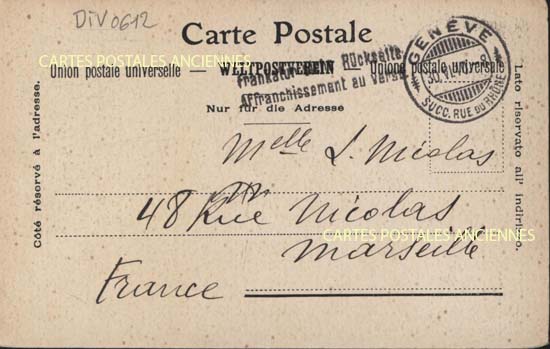 DIV0612
Carte Postale
Union postale universelle — WELTPOSTVEREIN — Unione postale universale
Nur für die Adresse
Côté réservé à l'adresse.
Lato riservato all' indirizzo.
Rückseite
Affranchissement au verso
GENÈVE
SUCC. RUE DU RHÔNE
CARTES POSTALES ANCIENNES
Melle L. Nicolas
48 Rue Nicolas
CARTES POSTALES ANCIENNES
Marseille
France